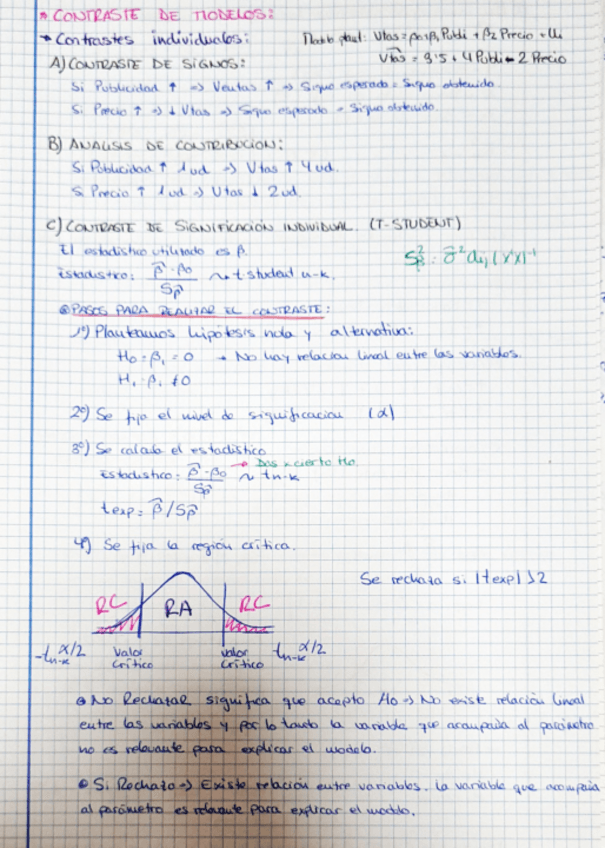 * CONTRASTE DE MODELOS:
* Contrastes individuales: Modelo ptual: Vtas = β0 + β1 Publi + β2 Precio + Ui
V̂tas = 3'5 + 4 Publi - 2 Precio
A) CONTRASTE DE SIGNOS:
Si Publicidad ↑ => Ventas ↑ => Signo esperado = Signo obtenido
Si Precio ↑ => ↓ Vtas => Signo esperado = Signo obtenido.
B) ANALISIS DE CONTRIBUCION:
Si Publicidad ↑ 1 ud => Vtas ↑ 4 ud.
Si Precio ↑ 1 ud => Vtas ↓ 2 ud.
C) CONTRASTE DE SIGNIFICACION INDIVIDUAL. (T-STUDENT)
El estadistico utilizado es β̂. S²β̂ : σ̂² aij (X'X)⁻¹
Estadistico: (β̂ - β0) / Sβ̂ ~ t student n-k.
PASOS PARA REALIZAR EL CONTRASTE:
1º) Planteamos hipótesis nula y alternativa:
H0 = β1 = 0 → No hay relacion lineal entre las variables.
H1 = β1 ≠ 0
2º) Se fija el nivel de significacion (α)
3º) Se calcula el estadistico
→ Das x cierto H0
Estadistico: (β̂ - β0) / Sβ̂ ~ tn-k
texp = β̂ / Sβ̂
4º) Se fija la región critica.
Se rechaza si |texp| > 2
RC RA RC
-tn-k α/2 Valor Crítico Valor Crítico tn-k α/2
No Rechazar significa que acepto H0 => No existe relacion lineal
entre las variables y por lo tanto la variable que acompaña al parámetro
no es relevante para explicar el modelo.
Si Rechazo => Existe relación entre variables. La variable que acompaña
al parámetro es relevante para explicar el modelo.